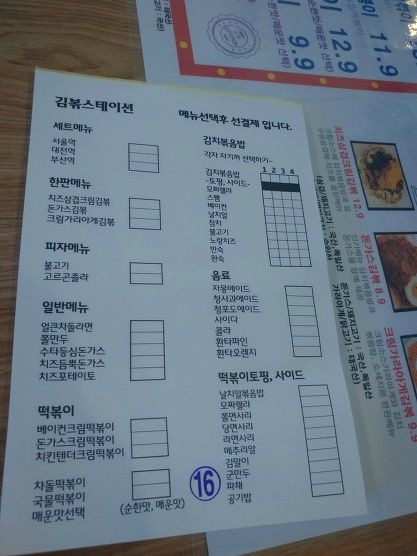 김볶스테이션
메뉴선택후 선결제 입니다.
세트메뉴
서울역
대전역
부산역
한판메뉴
치즈삼겹크림김볶
돈가스김볶
크림가리아게김볶
피자메뉴
불고기
고르곤졸라
일반메뉴
얼큰차돌라면
쫄만두
수타등심돈가스
치즈듬뿍돈가스
치즈포테이토
떡볶이
베이컨크림떡볶이
돈가스크림떡볶이
치킨텐더크림떡볶이
차돌떡볶이
국물떡볶이
매운맛선택
(순한맛, 매운맛)
김치볶음밥
각자 자기꺼 선택하기~
1 2 3 4
김치볶음밥
-토핑, 사이드-
모짜렐라
스팸
베이컨
날치알
참치
불고기
노랑치즈
반숙
완숙
음료
자몽에이드
청사과에이드
청포도에이드
사이다
콜라
환타파인
환타오렌지
떡볶이토핑, 사이드
날치알볶음밥
모짜렐라
쫄면사리
당면사리
라면사리
메추리알
김말이
군만두
파채
공기밥
16
11.9
12.9
9.9
치즈삼겹크림김볶 12.9
돈가스김볶 8.9
크림가리아게김볶 9.9